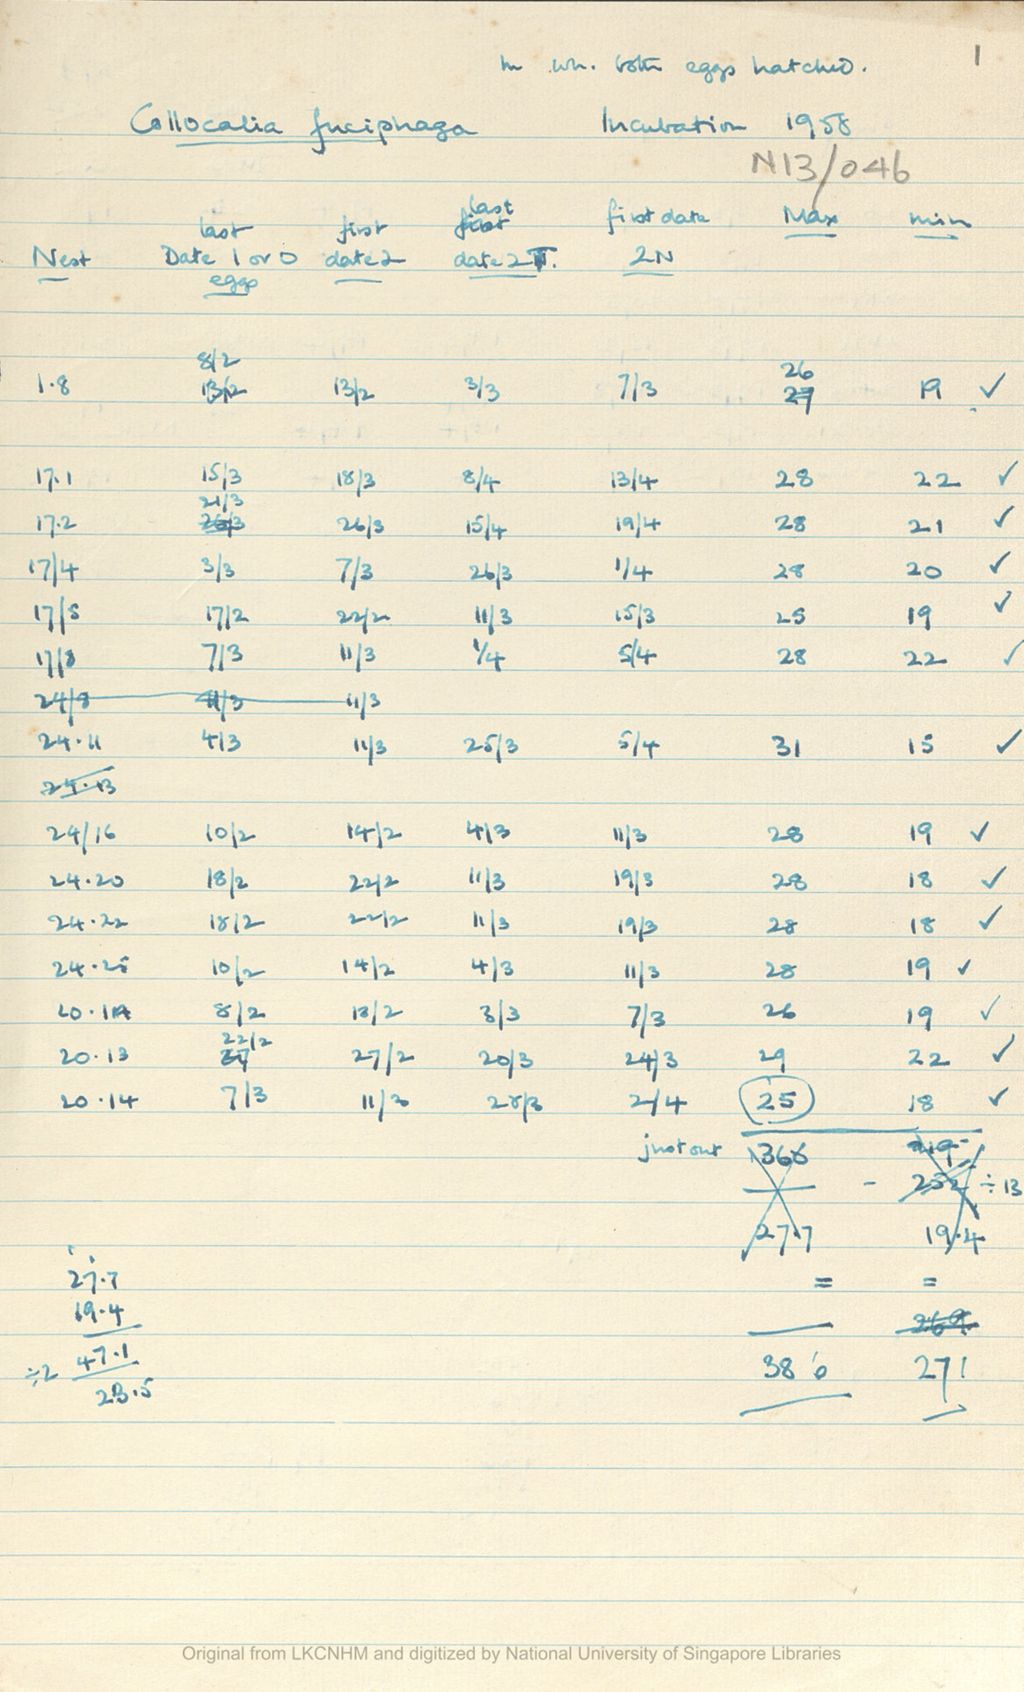 in wh. both eggs hatched. 1
Collocalia fuciphaga Incubation 1958
N13/046
last first last first date Max min
Nest Date 1 or 0 date 2 date 2 2N
eggs
8/2 26
1.8 13/2 13/2 3/3 7/3 27 19 ✓
17.1 15/3 18/3 8/4 13/4 28 22 ✓
21/3
17.2 26/3 26/3 15/4 19/4 28 21 ✓
17/4 3/3 7/3 26/3 1/4 28 20 ✓
17/5 17/2 22/2 11/3 15/3 25 19 ✓
17/8 7/3 11/3 1/4 5/4 28 22 ✓
24/8 11/3 11/3
24.11 4/3 11/3 25/3 5/4 31 15 ✓
24.13
24/16 10/2 14/2 4/3 11/3 28 19 ✓
24.20 18/2 22/2 11/3 19/3 28 18 ✓
24.22 18/2 22/2 11/3 19/3 28 18 ✓
24.25 10/2 14/2 4/3 11/3 28 19 ✓
20.11A 8/2 13/2 3/3 7/3 26 19 ✓
22/2
20.13 27/2 20/3 24/3 29 22 ✓
20.14 7/3 11/3 28/3 2/4 25 18 ✓
just out 366
- 252 ÷ 13
27.7 19.4
27.7 = =
19.4 269
÷2 47.1 386 271
23.5
Original from LKCNHM and digitized by National University of Singapore Libraries